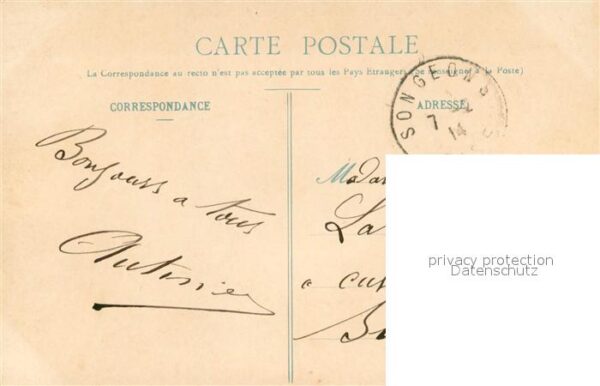 CARTE POSTALE
La Correspondance au recto n'est pas acceptée par tous les Pays Etrangers (se renseigner à la Poste)
CORRESPONDANCE
ADRESSE
SONGEONS
7
14
Bonjours a tous
Mada
La
a
Bu
privacy protection
Datenschutz